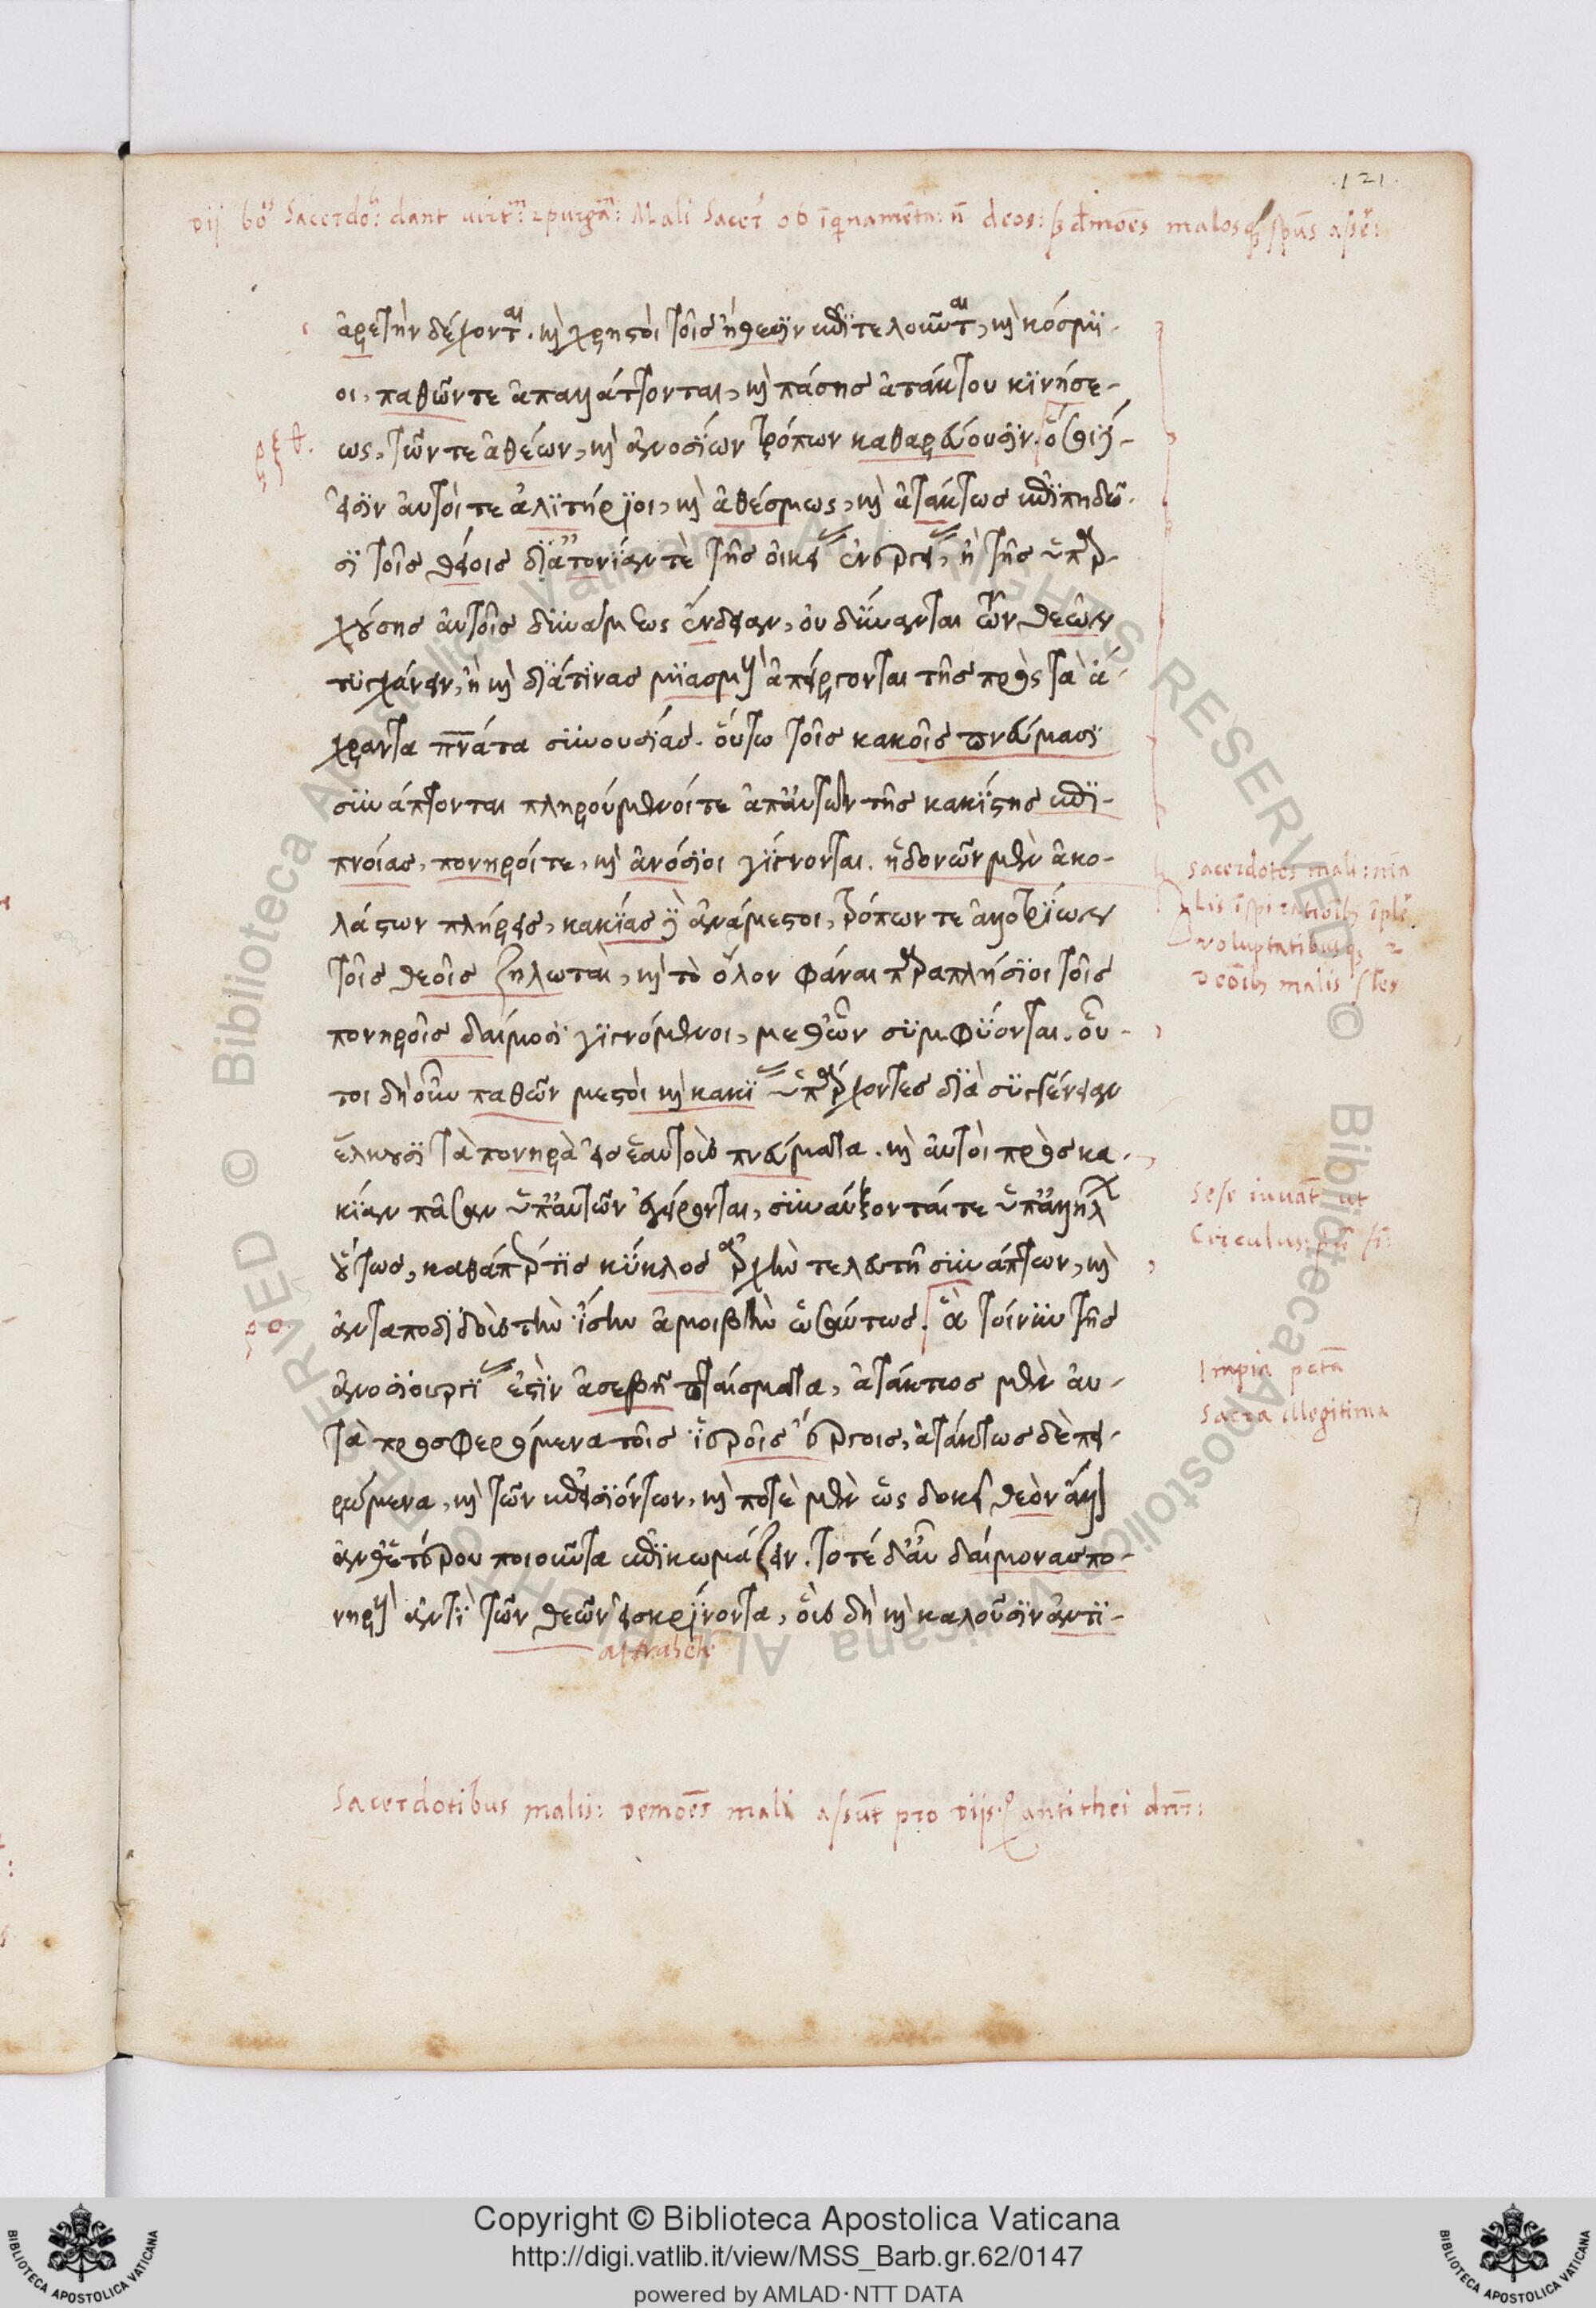 .121.
dij boˢ Sacerdoˢ: dant uirtᵐ: ⁊ purgāᵐ: Mali Sacerˢ ob īqnamēta: n̄ deos: ſꝫ dēmōes malosqꝫ spūs
ἀρετὴν δέχονται. καὶ χρηστοὶ τοῖς ἤθεσιν ἐπιτελοῦνται, καὶ κόσμι-
οι, παθῶν τε ἀπαλλάττονται, καὶ πάσης ἀτάκτου κινήσε-
ως, τῶν τε ἀθέων, καὶ ἀνοσίων τρόπων καθαρεύουσιν. ὅσοι δέ
εἰσιν αὐτοί τε ἀλιτήριοι, καὶ ἀθέσμως, καὶ ἀτάκτως ἐπιπηδῶ-
σι τοῖς θείοις διὰ ἀτονίαν τὲ τῆς οἰκείας ἐνεργείας, ἢ τῆς ὑπαρ-
χούσης αὐτοῖς δυνάμεως ἔνδειαν, οὐ δύνανται τῶν θεῶν
τυγχάνειν, ἢ καὶ διά τινας μιασμοὺς ἀπείργονται τῆς πρὸς τὰ ἄ-
χραντα πνεύματα συνουσίας. οὕτω τοῖς κακοῖς πνεύμασι
συνάπτονται πληρούμενοί τε ἀπ' αὐτῶν τῆς κακίστης ἐπι-
πνοίας, πονηροί τε, καὶ ἀνόσιοι γίγνονται. ἡδονῶν μὲν ἀκο-
λάστων πλήρεις, κακίας δὲ ἀνάμεστοι, τρόπων τε ἀλλοτρίων
τοῖς θεοῖς ζηλωταὶ, καὶ τὸ ὅλον φάναι παραπλήσιοι τοῖς
πονηροῖς δαίμοσι γιγνόμενοι, μεθ' ὧν συμφύονται. οὗ-
τοι δὴ οὖν παθῶν μεστοὶ καὶ κακίας ὑπάρχοντες διὰ συγγένειαν
ἕλκουσι τὰ πονηρὰ εἰς ἑαυτοὺς πνεύματα. καὶ αὐτοὶ πρὸς κα-
κίαν πᾶσαν ὑπ' αὐτῶν ἐγείρονται, συναύξονταί τε ὑπ' ἀλλήλων
οὕτως, καθάπερ τις κύκλος ἀρχὴν τελευτῇ συνάπτων, καὶ
ἀνταποδιδοὺς τὴν ἴσην ἀμοιβὴν ὡσαύτως. ἃ τοίνυν τῆς
ἀνοσιουργίας ἐστὶν ἀσεβῆ πταίσματα, ἀτάκτως μὲν αὐ-
τὰ προσφερόμενα τοῖς ἱεροῖς ἔργοις, ἀτάκτως δὲ πει-
ρώμενα, καὶ τῶν ἐπεισιόντων, καὶ ποτὲ μὲν ὡς δοκεῖ θεὸν ἄλλον
ἀνθ' ἑτέρου ποιοῦντα ἐπικωμάζειν. τοτὲ δ' αὖ δαίμονας πο-
νηροὺς ἀντὶ τῶν θεῶν εἰσκρίνοντα, οὓς δὴ καὶ καλοῦσιν ἀντι-
Sacerdotes mali: nīa
lis īspirationibꝫ īplē
uoluptatibusqꝫ ⁊
deōibꝫ malis
Sese iuuāt ut
Circulus
Impia petā
Sacra illegitima
Sacerdotibus malis: demōes mali assūt pro dijs: q antithei dnt̄:
Copyright © Biblioteca Apostolica Vaticana
http://digi.vatlib.it/view/MSS_Barb.gr.62/0147
powered by AMLAD·NTT DATA
BIBLIOTECA APOSTOLICA VATICANA
BIBLIOTECA APOSTOLICA VATICANA